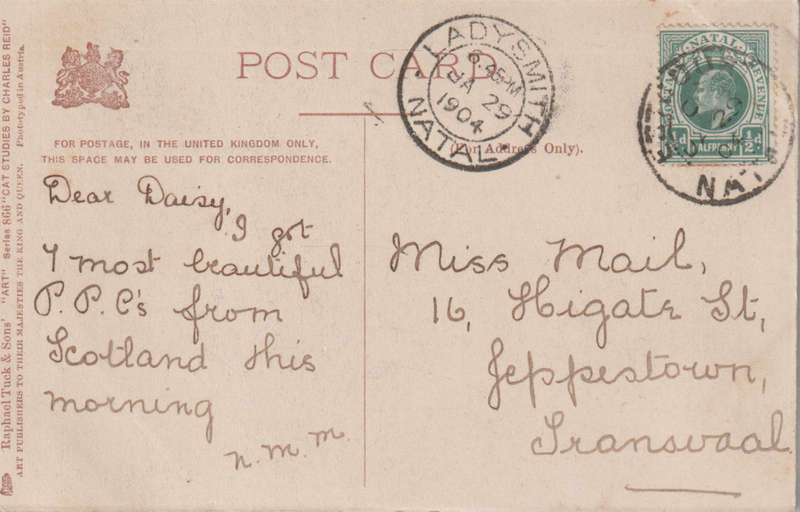 POST CARD
FOR POSTAGE, IN THE UNITED KINGDOM ONLY,
THIS SPACE MAY BE USED FOR CORRESPONDENCE.
(For Address Only).
LADYSMITH
8.45 PM
JA 29
1904
NATAL
NATAL REVENUE
½d ½d
HALFPENNY
NAT
Dear Daisy,
I got
7 most beautiful
P.P.C's from
Scotland this
morning
N.M.M.
Miss Mail,
16, Higate St,
Jeppestown,
Transvaal
Raphael Tuck & Sons' "ART" Series 866 "CAT STUDIES BY CHARLES REID"
ART PUBLISHERS TO THEIR MAJESTIES THE KING AND QUEEN. Phototyped in Austria.